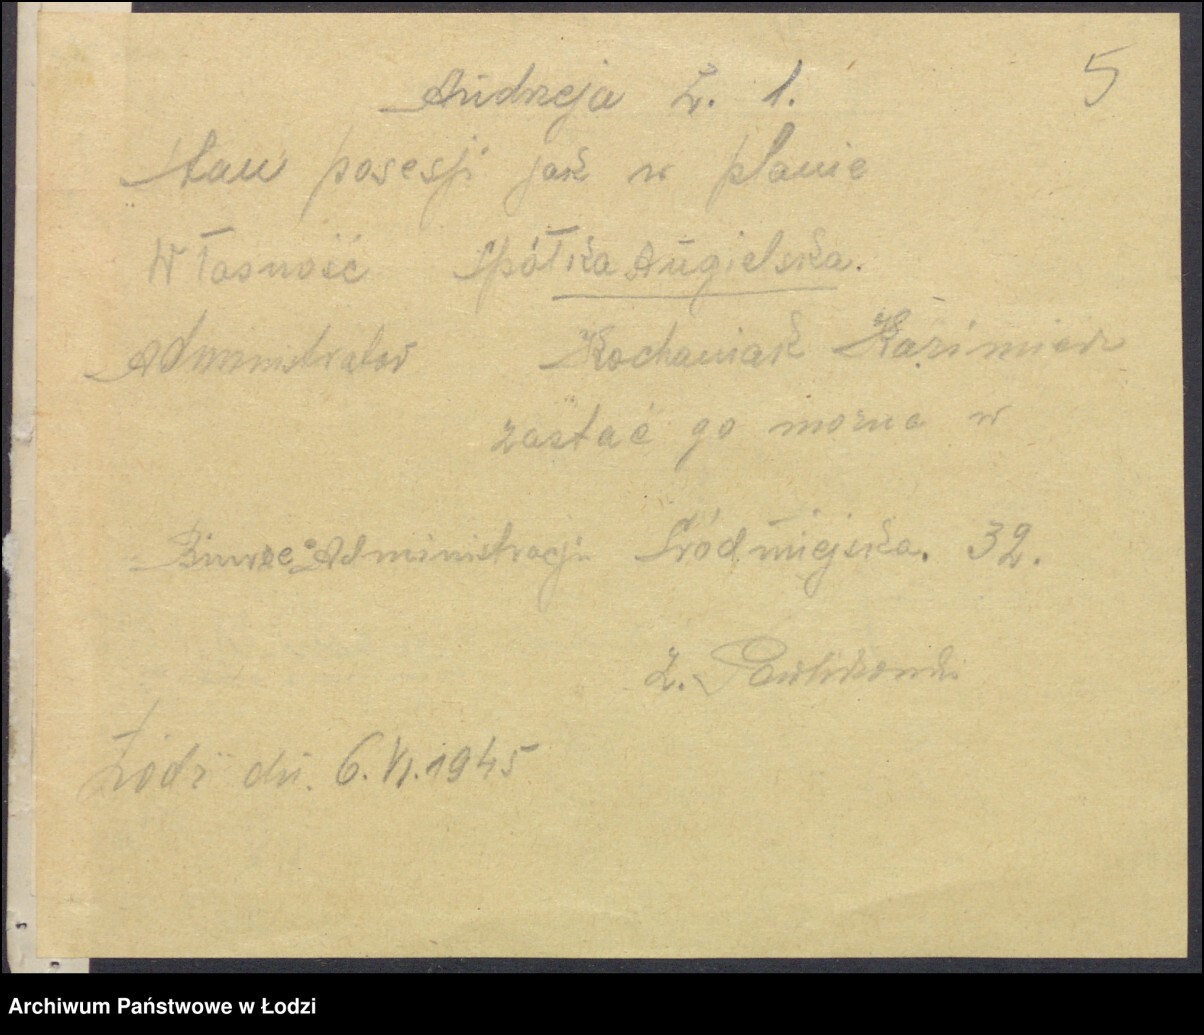 5
Andrzeja Ł. 1.
Stan posesji jak w planie
Własność Spółka Angielska.
Administrator Kochaniak Kazimierz
zastać go można w
Biurze Administracji Śródmiejska. 32.
Z. Pawlikowski
Łódź dn. 6.VI.1945
Archiwum Państwowe w Łodzi